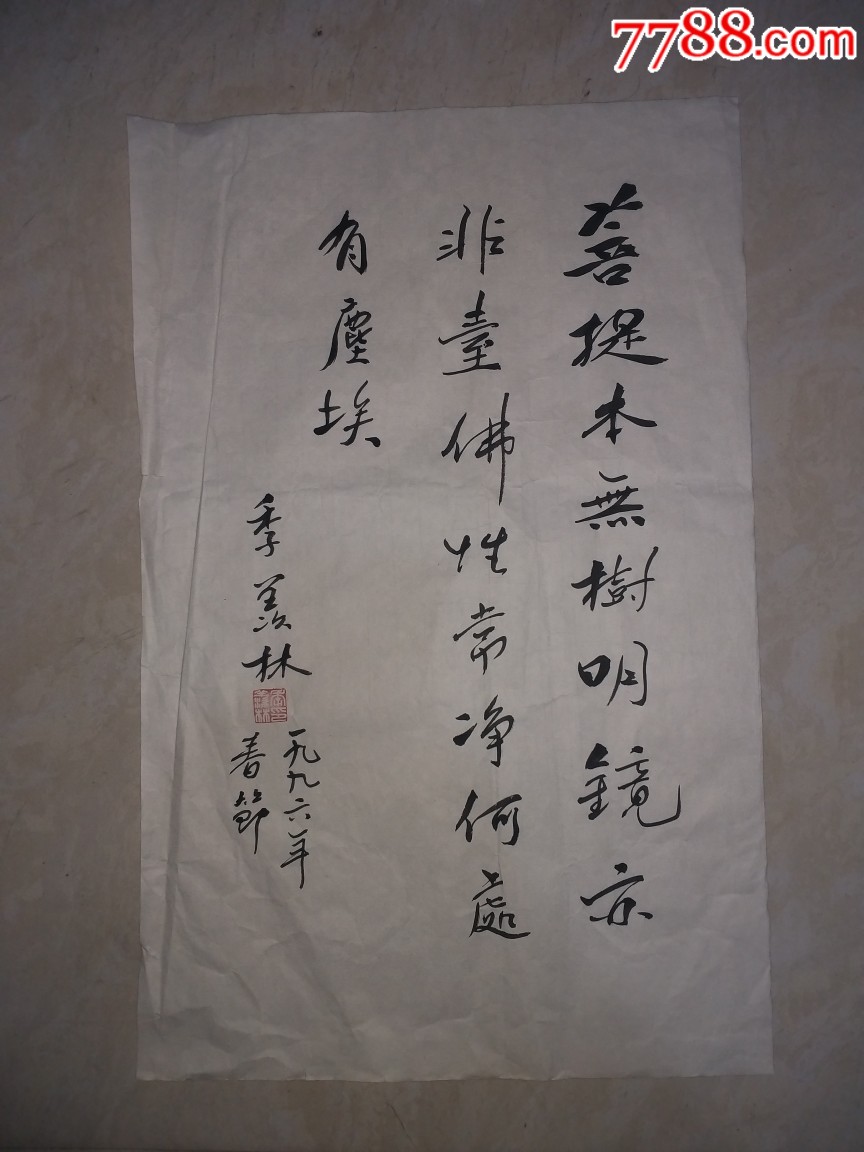 7788.com
菩提本無樹明鏡亦
非臺佛性常净何處
有塵埃
季羨林
一九九六年
春節